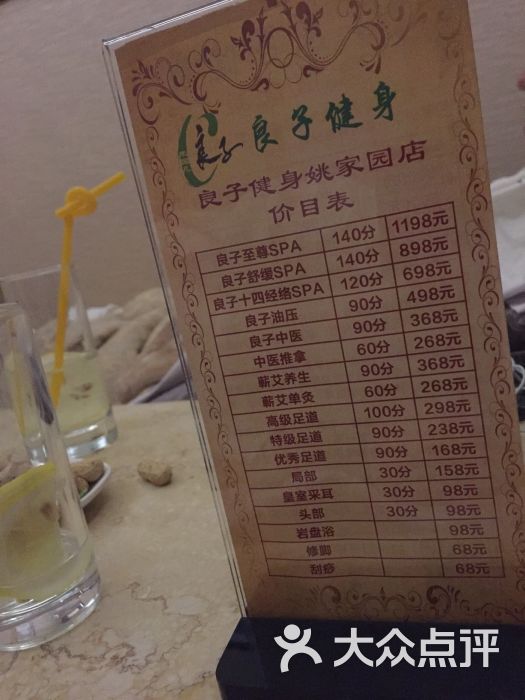 良子 良子健身
良子健身姚家园店
价目表
良子至尊SPA 140分 1198元
良子舒缓SPA 140分 898元
良子十四经络SPA 120分 698元
良子油压 90分 498元
良子中医 90分 368元
中医推拿 60分 268元
蕲艾养生 90分 368元
蕲艾单灸 60分 268元
高级足道 100分 298元
特级足道 90分 238元
优秀足道 90分 168元
局部 30分 158元
皇室采耳 30分 98元
头部 30分 98元
岩盘浴 98元
修脚 68元
刮痧 68元
大众点评